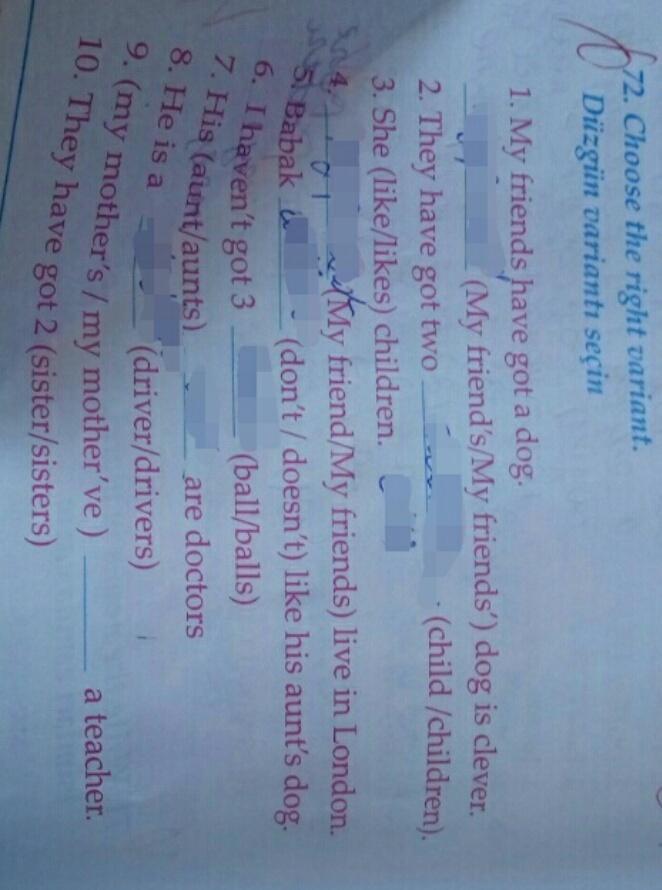 72. Choose the right variant.
Düzgün variantı seçin
1. My friends have got a dog.
(My friend's/My friends') dog is clever.
2. They have got two . (child /children).
3. She (like/likes) children.
4. (My friend/My friends) live in London.
5. Babak (don't / doesn't) like his aunt's dog.
6. I haven't got 3 (ball/balls)
7. His (aunt/aunts) are doctors
8. He is a (driver/drivers)
9. (my mother's / my mother've ) a teacher.
10. They have got 2 (sister/sisters)